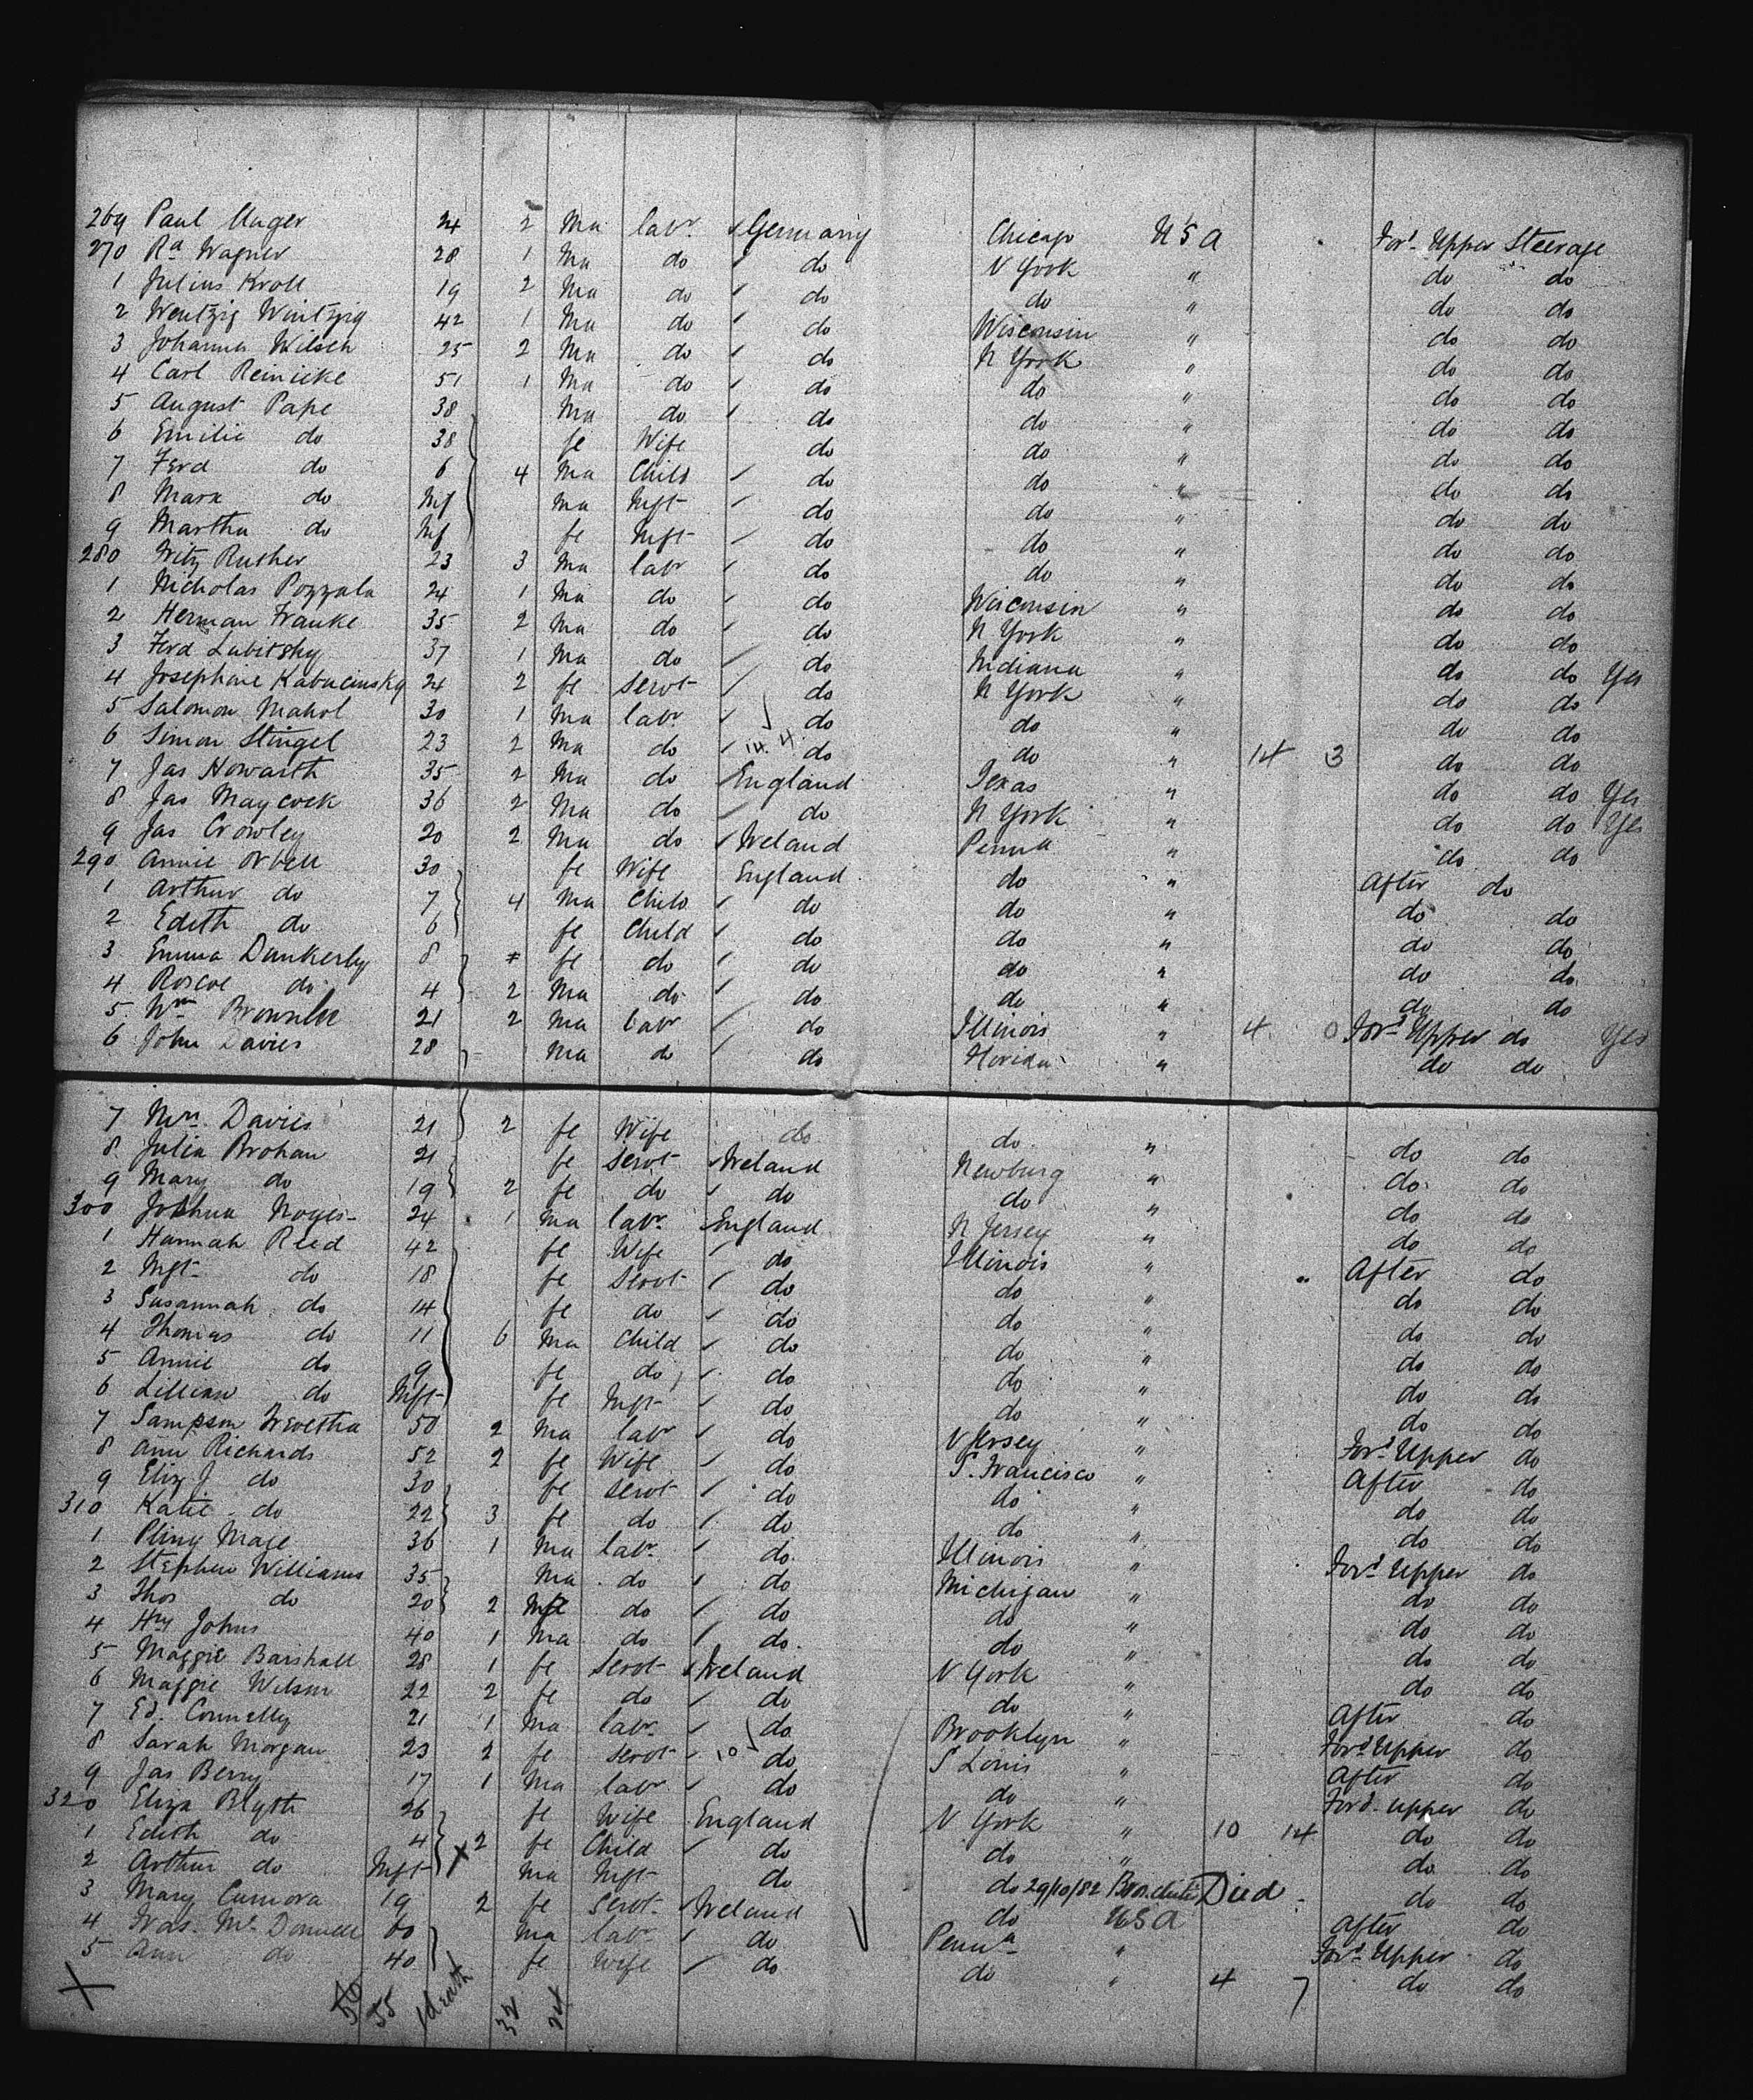 269 Paul Unger 24 2 Ma labr Germany Chicago USA Ford Upper Steerage
270 Rd Wagner 28 1 Ma do do N York " do do
1 Julius Kroll 19 2 Ma do do do " do do
2 Wentzig Wintzig 42 1 Ma do do Wisconsin " do do
3 Johanna Wilsch 25 2 Ma do do N York " do do
4 Carl Reinicke 51 1 Ma do do do " do do
5 August Pape 38 Ma do do do " do do
6 Emilie do 38 fe Wife do do " do do
7 Ferd do 6 4 Ma Child do do " do do
8 Marx do Inf Ma Inft do do " do do
9 Martha do Inf fe Inft do do " do do
280 Fritz Ruther 23 3 Ma labr do do " do do
1 Nicholas Pozzala 24 1 Ma do do Wisconsin " do do
2 Herman Franke 35 2 Ma do do N York " do do
3 Ferd Lubitshy 37 1 Ma do do Indiana " do do
4 Josephine Kabucinska 24 2 fe Servt do N York " do do Yes
5 Salomon Mahol 30 1 Ma labr do do " do do
6 Simon Stingel 23 2 Ma do 14 4 do do " 14 3 do do
7 Jas Howarth 35 2 Ma do England Texas " do do
8 Jas Maycock 36 2 Ma do do N York " do do Yes
9 Jas Crowley 20 2 Ma do Ireland Penna " do do Yes
290 Annie Orbell 30 fe Wife England do " After do
1 Arthur do 7 4 Ma Child do do " do do
2 Edith do 6 fe Child do do " do do
3 Emma Dunkerly 8 fe do do do " do do
4 Roscoe do 4 2 Ma do do do " do do
5 Wm Brownlee 21 2 Ma labr do Illinois " 4 0 Ford Upper do Yes
6 John Davies 28 Ma do do Florida " do do
7 Mrs Davies 21 2 fe Wife do do " do do
8 Julia Brohan 21 fe Servt Ireland Newburg " do do
9 Mary do 19 2 fe do do do " do do
300 Joshua Noyes 24 1 Ma labr England N Jersey " do do
1 Hannah Reed 42 fe Wife do Illinois " After do
2 Mgt do 18 fe Servt do do " do do
3 Susannah do 14 fe do do do " do do
4 Thomas do 11 6 Ma Child do do " do do
5 Annie do 9 fe do do do " do do
6 Lillian do Inft fe Inft do do " do do
7 Sampson Trevetha 50 2 Ma labr do N Jersey " Ford Upper do
8 Ann Richards 52 2 fe Wife do S. Francisco " After do
9 Eliz J do 30 fe Servt do do " do do
310 Katie do 22 3 fe do do do " do do
1 Pliny Mace 36 1 Ma labr do Illinois " Ford Upper do
2 Stephen Williams 35 Ma do do Michigan " do do
3 Thos do 20 2 Ma do do do " do do
4 Hry Johns 40 1 Ma do do do " do do
5 Maggie Barshall 28 1 fe Servt Ireland N York " do do
6 Maggie Wilson 22 2 fe do do do " After do
7 Ed. Connelly 21 1 Ma labr do Brooklyn " Ford Upper do
8 Sarah Morgan 23 2 fe Servt 10 do S Louis " After do
9 Jas Berry 17 1 Ma labr do do " Ford Upper do
320 Eliza Blyth 26 fe Wife England N York " 10 14 do do
1 Edith do 4 2 fe Child do do " do do
2 Arthur do Inft X Ma Inft do do 29/10/82 Bronchitis Died do do
3 Mary Cumora 19 2 fe Servt Ireland do USA After do
4 Fras. McDonnell 60 Ma labr do Penna " Ford Upper do
5 Ann do 40 fe Wife do do " 4 7 do do
X 56 55 1 death 32 24